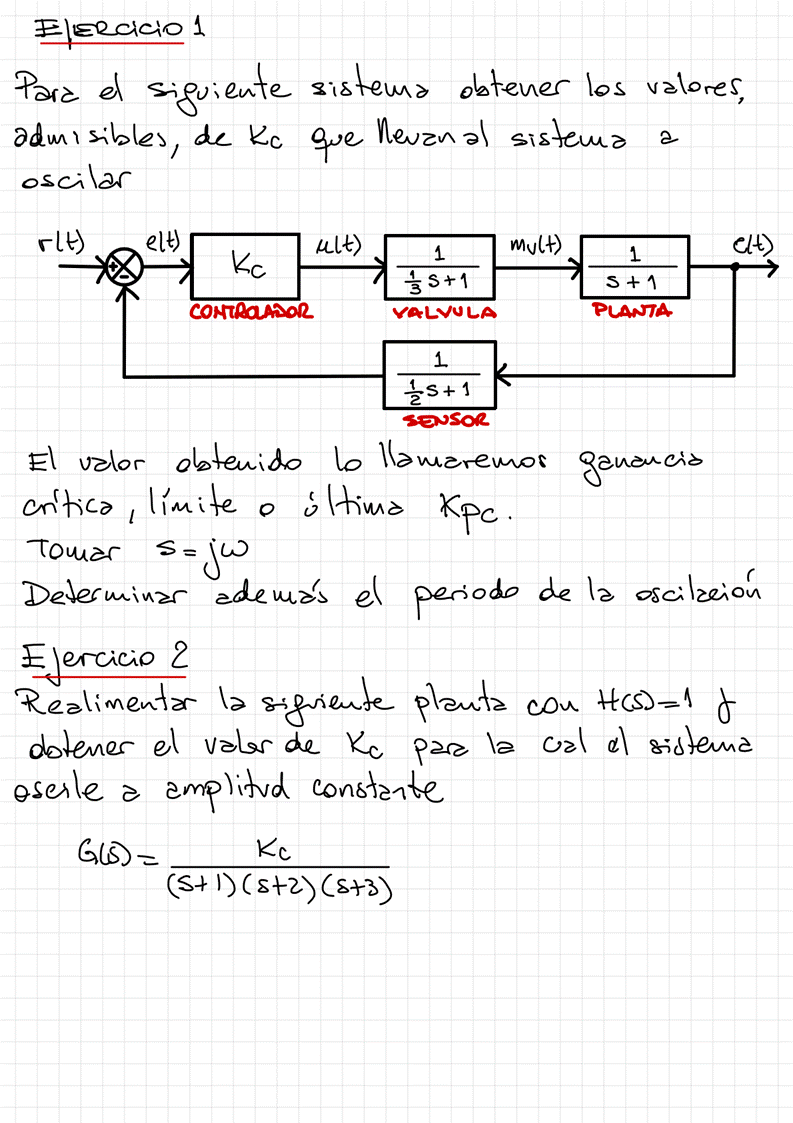 Ejercicio 1
Para el siguiente sistema obtener los valores,
admisibles, de Kc que llevan al sistema a
oscilar
r(t) e(t) Kc μ(t) 1 / (1/3 s+1) mv(t) 1 / (s+1) c(t)
+
-
CONTROLADOR VALVULA PLANTA
1 / (1/2 s+1)
SENSOR
El valor obtenido lo llamaremos ganancia
crítica, límite o última Kpc.
Tomar s=jω
Determinar además el periodo de la oscilación
Ejercicio 2
Realimentar la siguiente planta con H(s)=1 y
obtener el valor de Kc para la cal el sistema
oscile a amplitud constante
G(s) = Kc / (s+1)(s+2)(s+3)